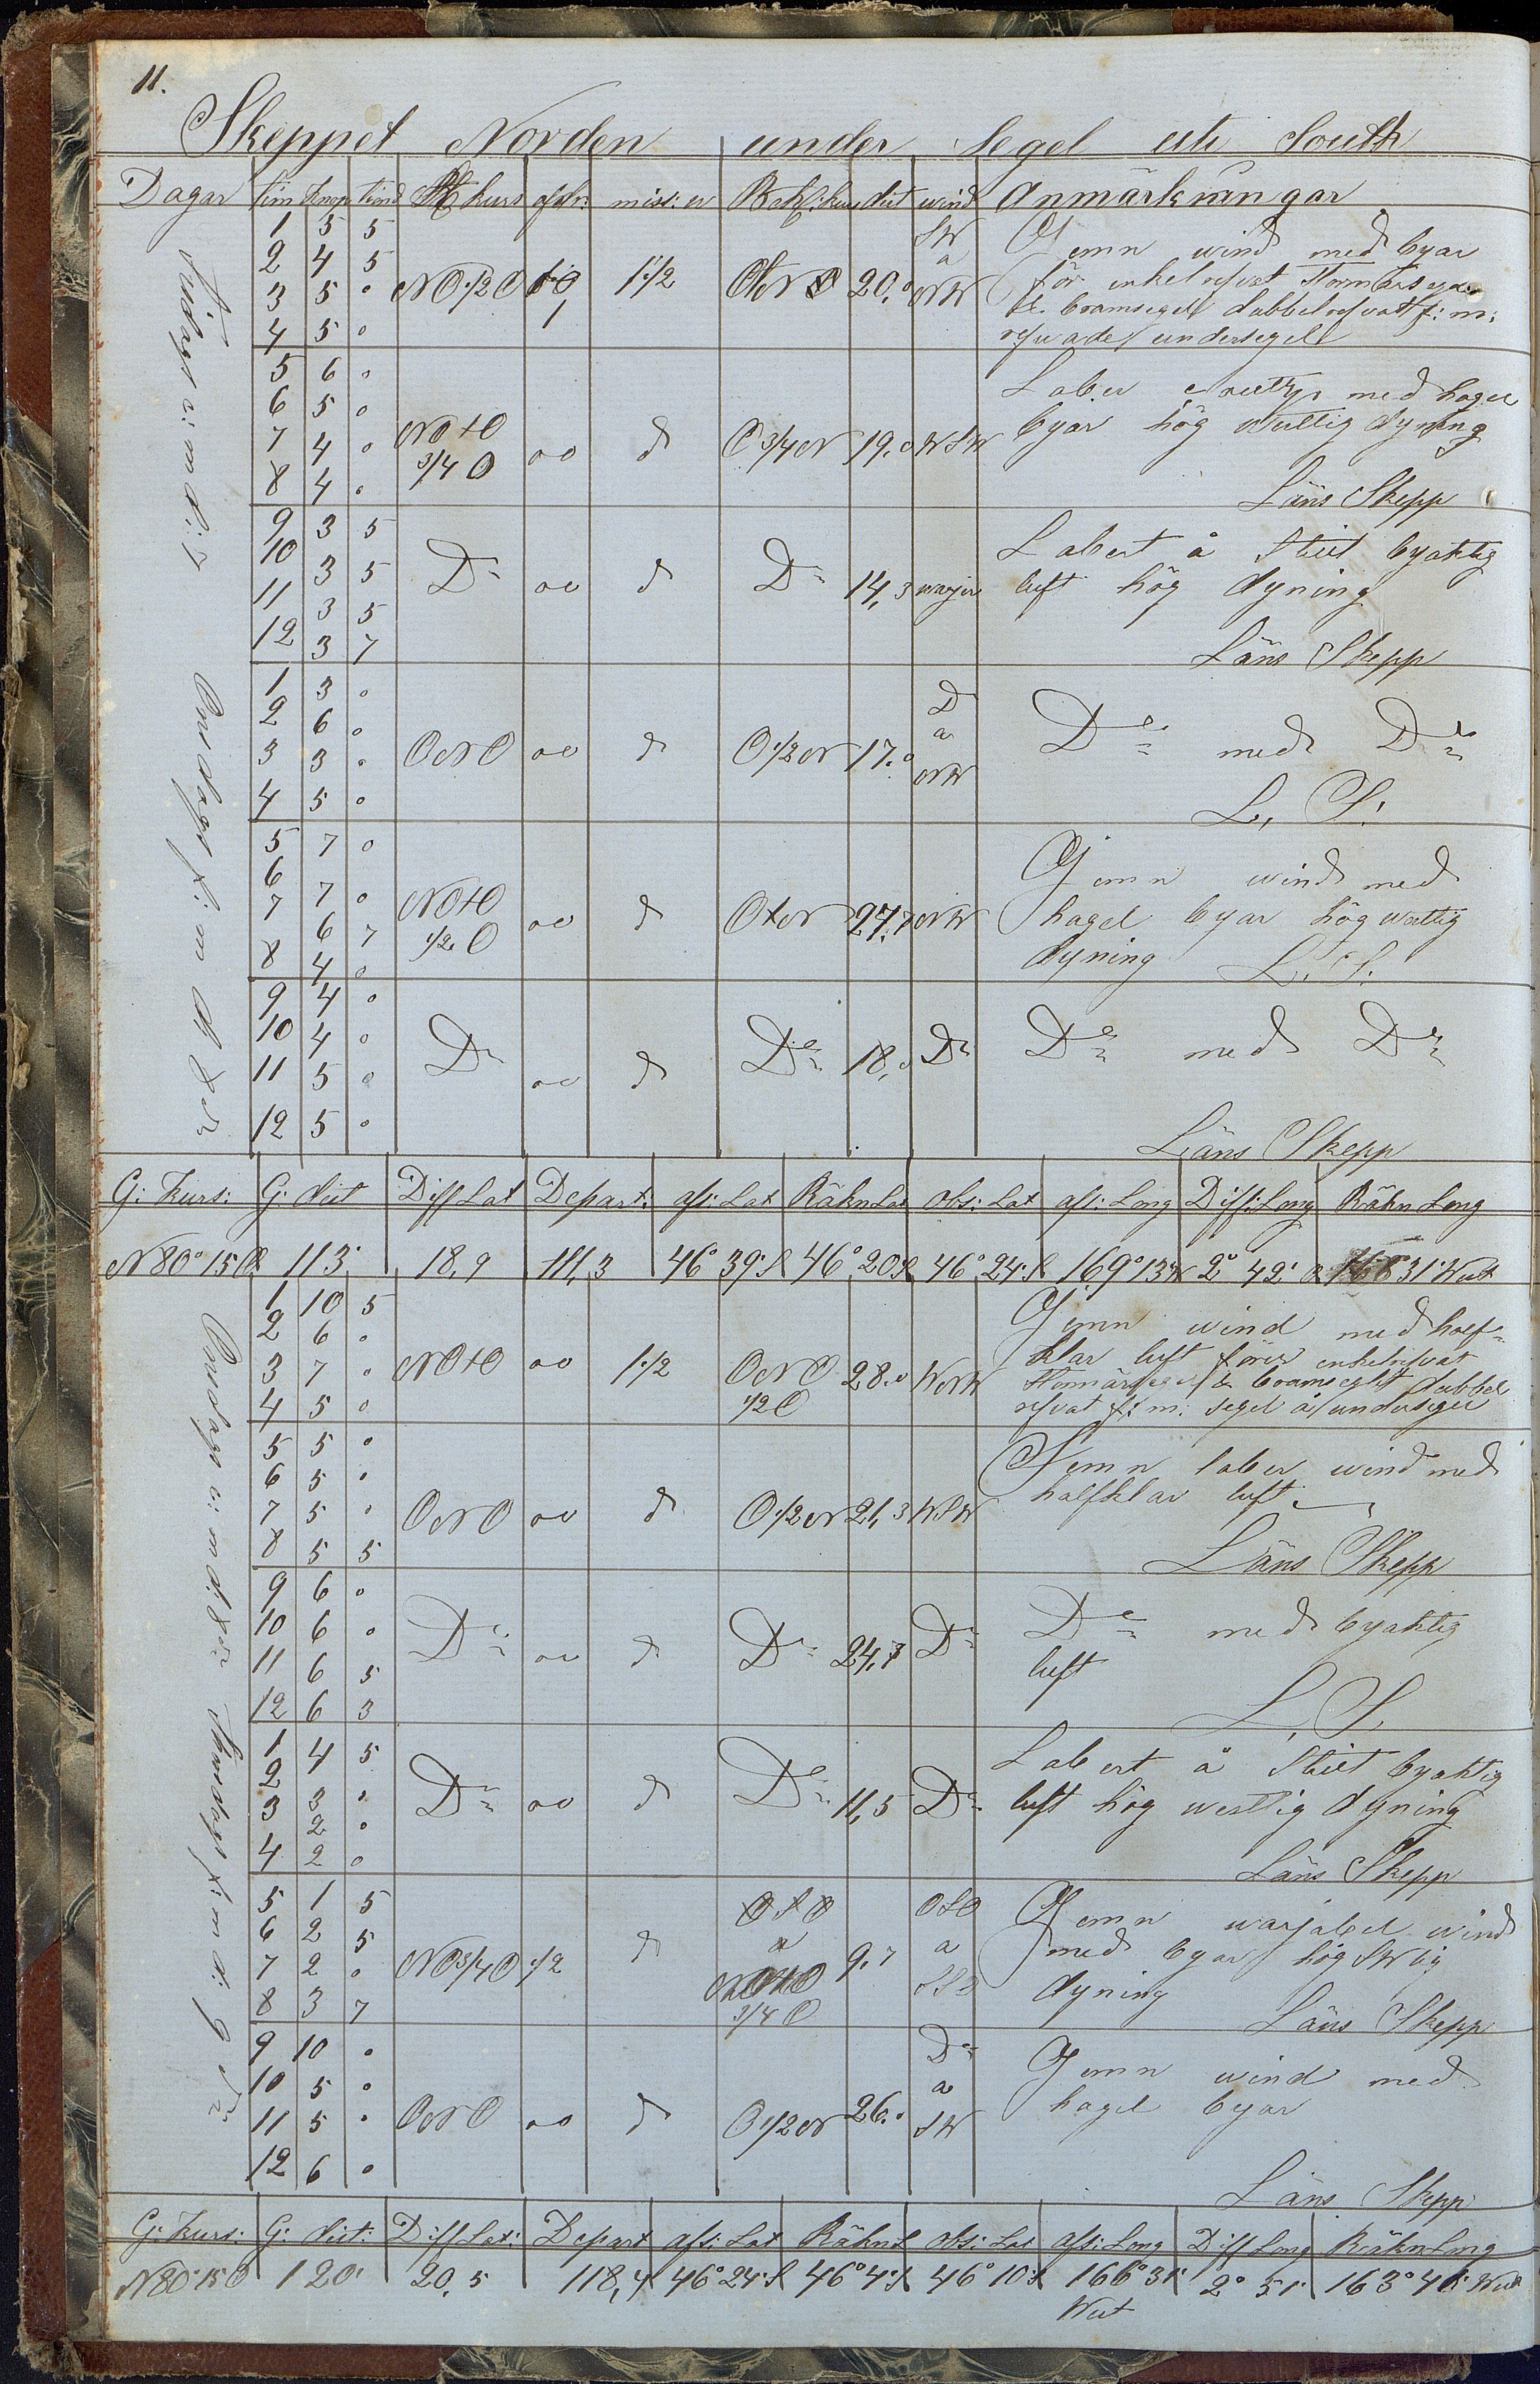 11.
Skeppet Norden under Segel uti South
Dagar tim knop tiend St kurs afdr: miss: v Beh: kurs dist wind Anmärkningar
Tisdags e: m d: 7
1 5 5
2 4 5
3 5 0
4 5 0
NO 1/2 O 1 1 1/2 OtN 20,0 SW a NW
Jemn wind med byar
för enkelrefvat Stormärssegel
& bramsegel dubbelrefvatt f: m:
refvade undersegel
5 6 0
6 5 0
7 4 0
8 4 0
NOtO 3/4 O oo d O 3/4 N 19,0 WSW
Laber med hagel
byar hög westlig dyning
Läns Skepp
9 3 5
10 3 5
11 3 5
12 3 7
Do oo d Do 14,3 warjer
Labert å Stilt byaktig
luft hög dyning
Läns Skepp
Onsdags f: m d 8de
1 3 0
2 6 0
3 3 0
4 5 0
ONO oo d O 1/2 N 17,0 D a NW
Do med Do
L. S.
5 7 0
6 7 0
7 6 7
8 4 0
NOtO 1/2 O oo d OtN 27,7 NW
Jemn wind med
hagel byar hög westlig
dyning L. S.
9 4 0
10 4 0
11 5 0
12 5 0
Do oo d Do 18,0 Do
Do med Do
Läns Skepp
G: kurs: G: dist Diff Lat Depart: aff: Lat Räkn Lat Obs: Lat aff: Long Diff: Long Räkn Long
N 80° 15 O 113' 18,9 111,3 46° 39' S 46° 20' S 46° 24' S 169° 13' W 2° 42' O 166° 31' West
Onsdags e: m d: 8de
1 10 5
2 6 0
3 7 0
4 5 0
NOtO oo 1 1/2 ONO 1/2 O 28,0 WNW
Jemn wind med half-
klar luft förer enkelrefvat
Stormärssegel & bramseglet dubbel
refvat f: m: segel å undersegel
5 5 0
6 5 0
7 5 0
8 5 5
ONO oo d O 1/2 N 21,3 WSW
Jemn laber wind med
halfklar luft
Läns Skepp
9 6 0
10 6 0
11 6 5
12 6 3
Do oo d Do 24,7 Do
Do med byaktig
luft
L. S.
Thorsdags f: m d: 9de
1 4 5
2 3 0
3 2 0
4 2 0
Do oo d Do 11,5 Do
Labert å Stilt byaktig
luft hög westlig dyning
Läns Skepp
5 1 5
6 2 5
7 2 0
8 3 7
NO 3/4 O 1/2 d OSO a NOtO 3/4 O 9,7 OSO a SSO
Jemn warjabel wind
med byar hög SW lig
dyning
Läns Skepp
9 10 0
10 5 0
11 5 0
12 6 0
ONO oo d O 1/2 N 26,0 Do a SW
Jemn wind med
hagel byar
Läns Skepp
G: kurs: G: dist: Diff Lat: Depart aff: Lat Räkn L Obs: Lat aff: Long Diff Long Räkn Long
N 80° 15' O 120' 20,5 118,4 46° 24' S 46° 4' S 46° 10' S 166° 31' West 2° 51' 163° 40' West